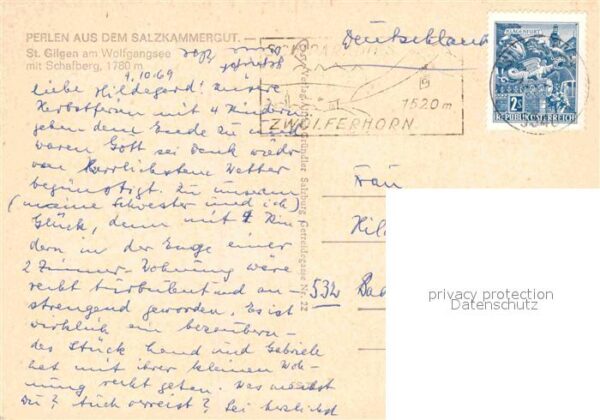 PERLEN AUS DEM SALZKAMMERGUT. —
St. Gilgen am Wolfgangsee
mit Schafberg, 1780 m
9.10.69
liebe Hildegard! Unsere
Herbstferien mit 4 Kindern
gehen dem Ende zu und
waren Gott sei Dank
von herrlichstem Wetter
begünstigt. Zu unserem
(meine Schwester und ich)
Glück, denn mit 4 Kin
dern in der Enge einer
2 Zimmer-Wohnung wäre
recht turbulent und an-
strengend geworden. Es ist
wirklich ein bezaubern-
des Stück Land und Gabriele
hat mit ihrer kleinen Woh-
nung recht getan. Was machst
Du? Auch verreist? Sei herzlichst
gegrüßt
Gründler Salzburg, Getreidegasse Nr. 22
Deutschland
1520 m
ZWÖLFERHORN
KLAGENFURT
2S
REPUBLIK ÖSTERREICH
Frau
Hil
532 Bad
privacy protection
Datenschutz